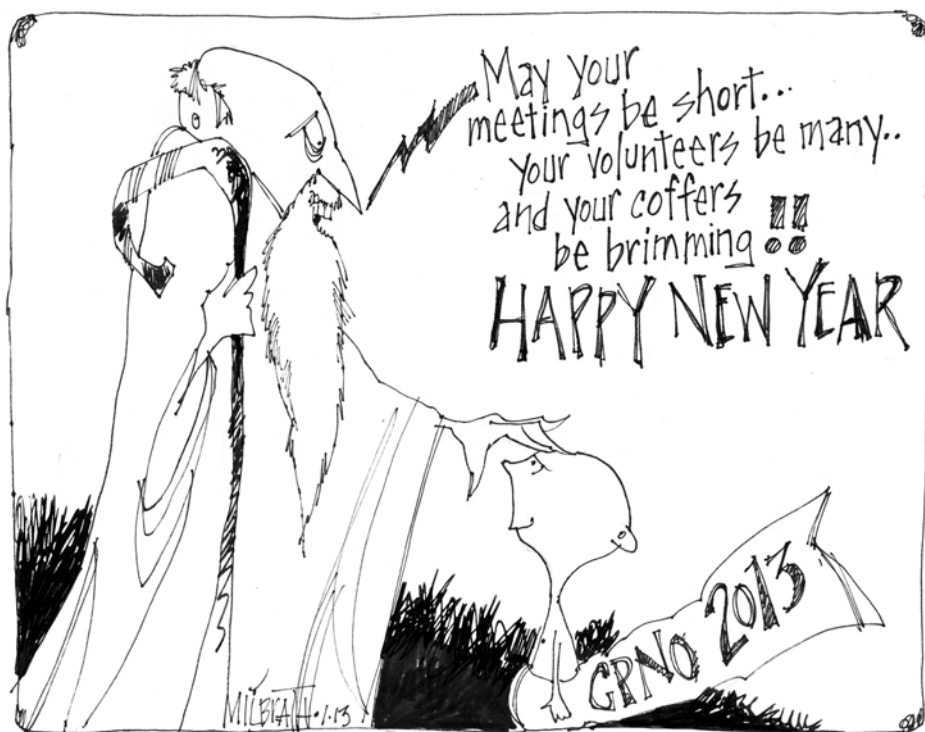 May your
meetings be short...
your volunteers be many..
and your coffers
be brimming!!
HAPPY NEW YEAR
GPNO 2013
MILBRATH•1•13